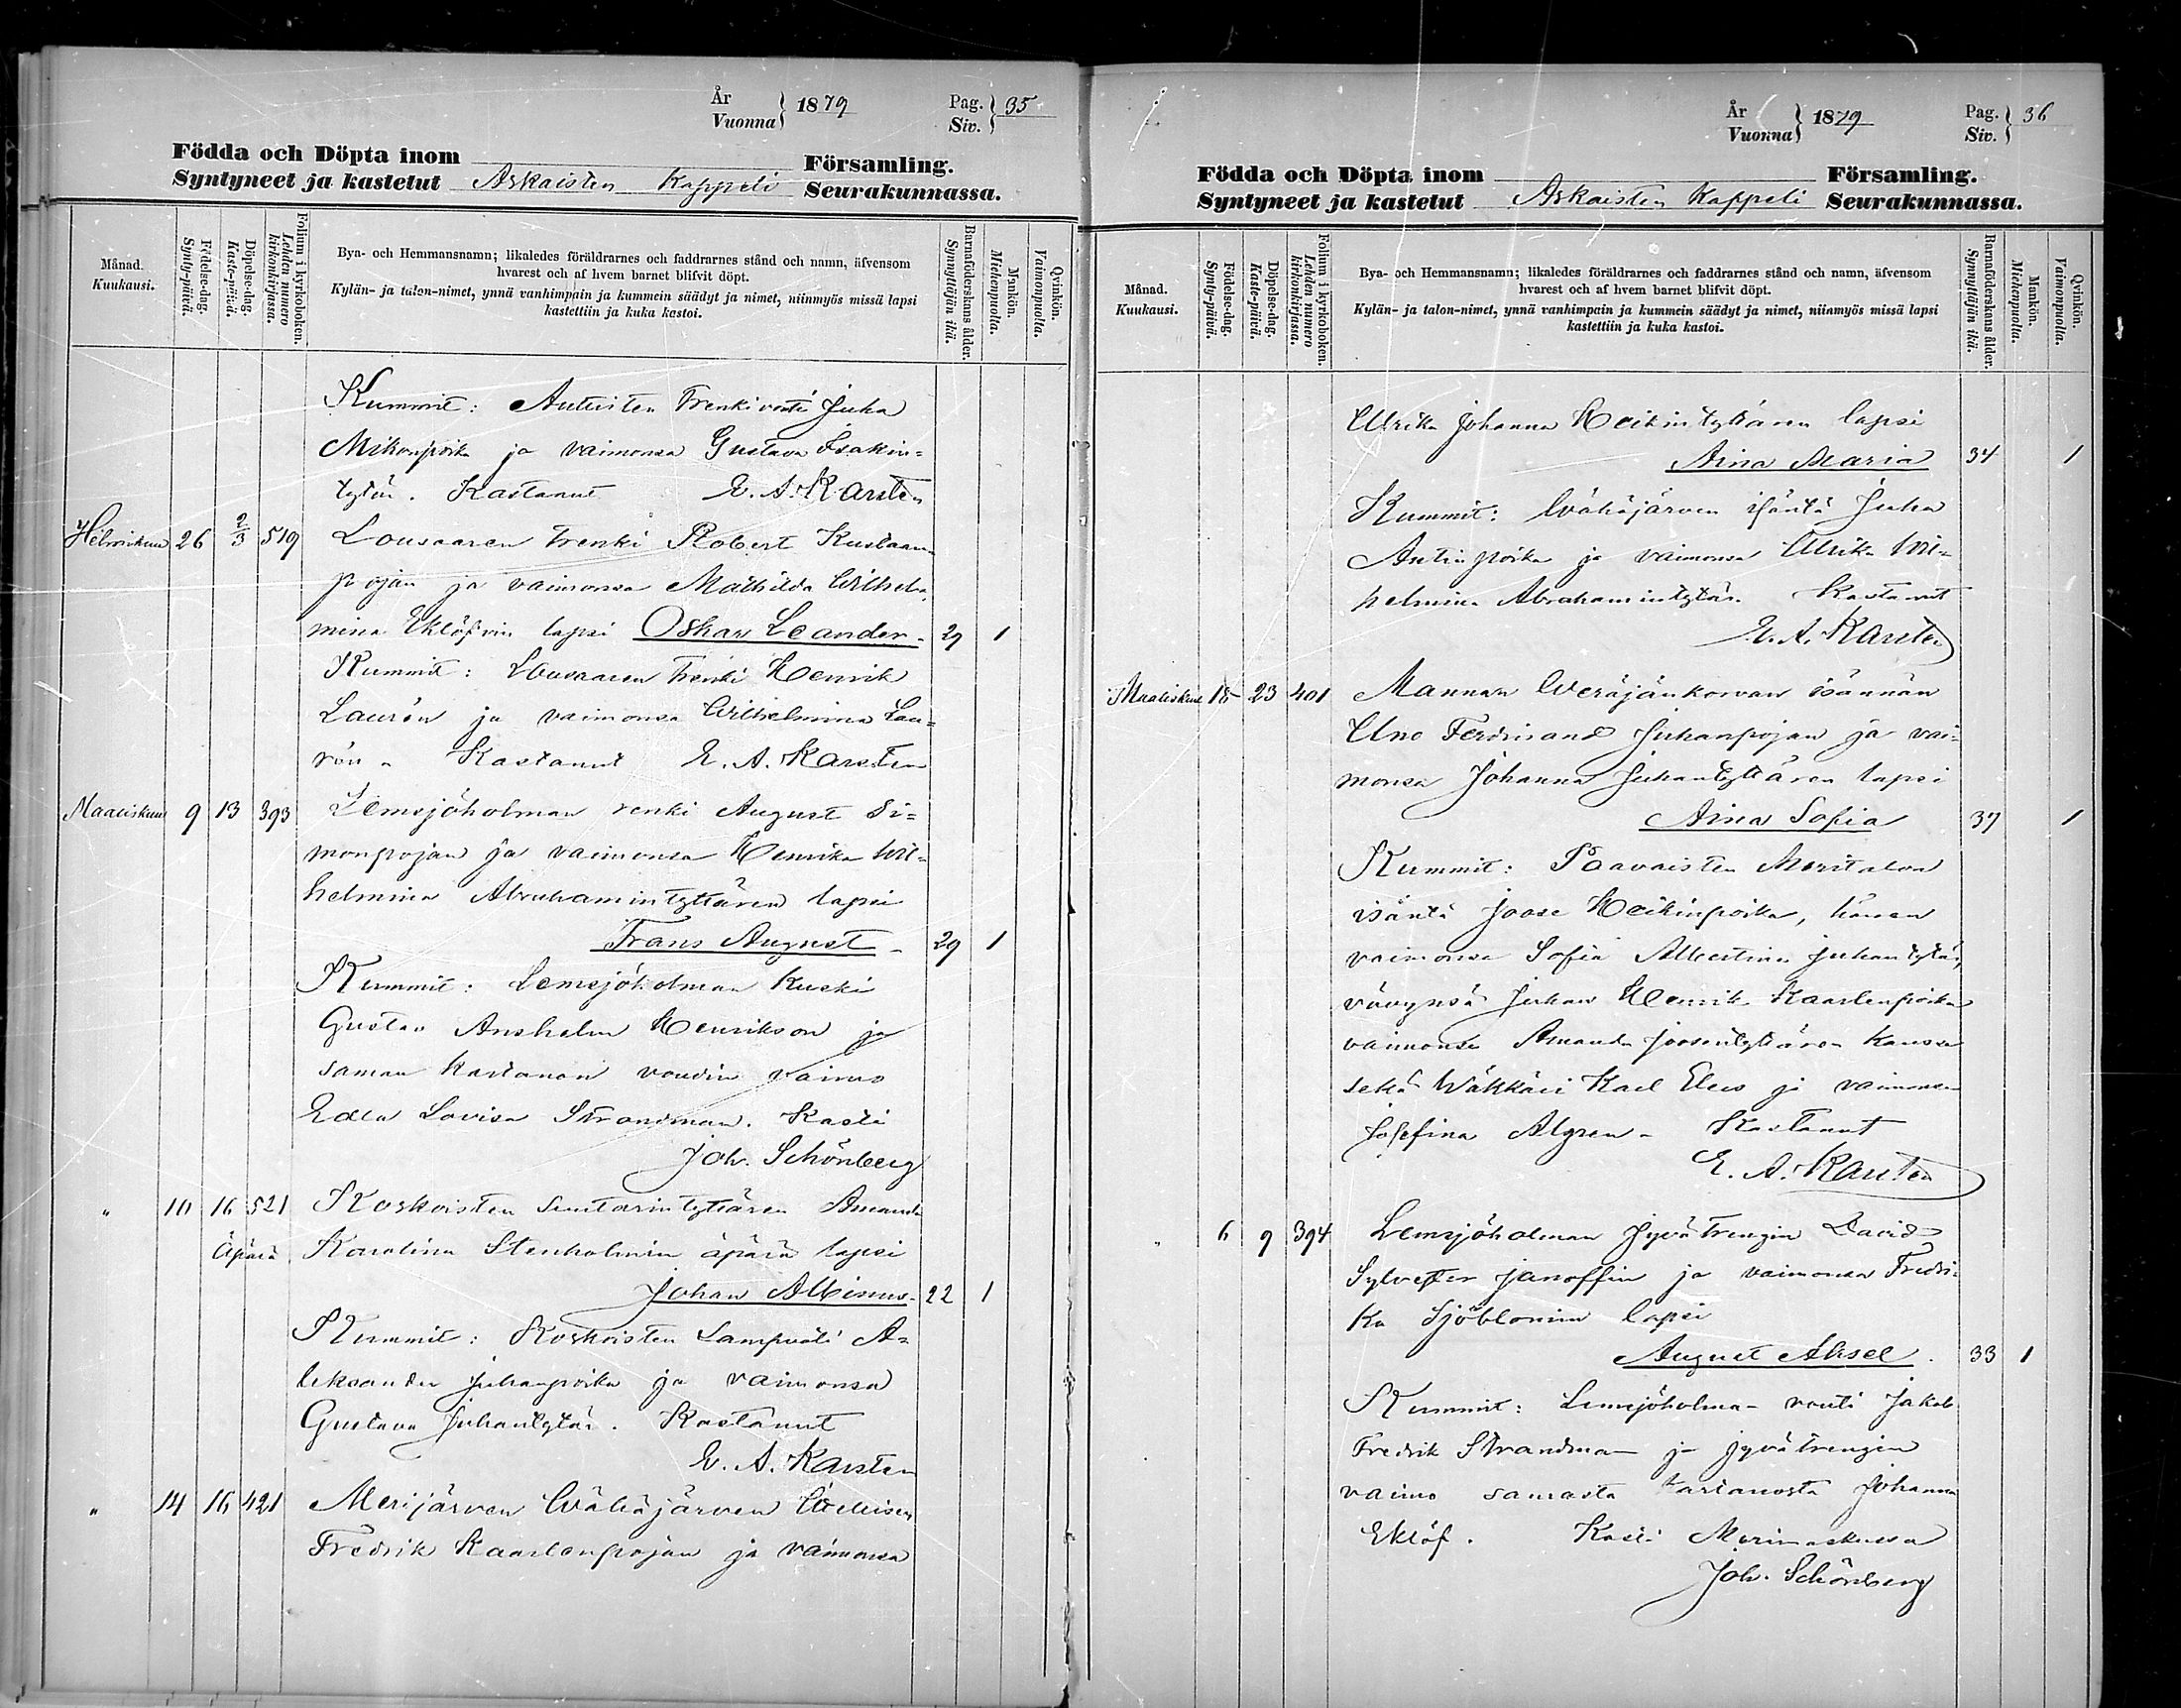 År
Vuonna } 1879
Pag.
Siv. } 35
Födda och Döpta inom Församling.
Syntyneet ja kastetut Askaisten Kappeli Seurakunnassa.
Månad.
Kuukausi.
Födelse-dag.
Synty-päivä.
Döpelse-dag.
Kaste-päivä.
Folium i kyrkoboken.
Lehden numero
kirkonkirjassa.
Bya- och Hemmansnamn; likaledes föräldrarnes och faddrarnes stånd och namn, äfvensom
hvarest och af hvem barnet blifvit döpt.
Kylän- ja talon-nimet, ynnä vanhimpain ja kummein säädyt ja nimet, niinmyös missä lapsi
kastettiin ja kuka kastoi.
Barnaföderskans ålder.
Synnyttäjän ikä.
Mankön.
Miehenpuolta.
Qvinkön.
Vaimonpuolta.
Kummit: Autuisten Trenkivouti Juha
Mikonpoika ja vaimonsa Gustava Isakin=
tytär. Kastanut E. A. Karsten
Helmikuu 26 2/3 519 Lousaaren trenki Robert Kustaan
pojan ja vaimonsa Mathilda Wilhel
mina Eklöfvin lapsi Oskar Leander 29 1
Kummit: Lousaaren trenki Henrik
Laurén ja vaimonsa Wilhelmina Lau=
rén - Kastanut E. A. Karsten
Maaliskuu 9 13 393 Lemsjöholman renki August Si=
monpojan ja vaimonsa Henrika Wil=
helmina Abrahamintyttären lapsi
Frans August 29 1
Kummit: Lemsjöholman kuski
Gustav Anshelm Henrikson ja
saman kartanon voudin vaimo
Edla Lovisa Strandman. Kasti
Joh. Schönberg
" 10 16 521 Koskoisten tyttären Amanda
Äpärä Karolina Stenholmin äpärä lapsi
Johan Albinus 22 1
Kummit: Koskoisten Lampuoti A=
leksander Juhanpoika ja vaimonsa
Gustava Juhantytär. Kastanut
E. A. Karsten
" 14 16 421 Merijärven Wähäjärven
Fredrik Kaarlenpojan ja vaimonsa
År
Vuonna } 1879
Pag.
Siv. } 36
Födda och Döpta inom Församling.
Syntyneet ja kastetut Askaisten Kappeli Seurakunnassa.
Månad.
Kuukausi.
Födelse-dag.
Synty-päivä.
Döpelse-dag.
Kaste-päivä.
Folium i kyrkoboken.
Lehden numero
kirkonkirjassa.
Bya- och Hemmansnamn; likaledes föräldrarnes och faddrarnes stånd och namn, äfvensom
hvarest och af hvem barnet blifvit döpt.
Kylän- ja talon-nimet, ynnä vanhimpain ja kummein säädyt ja nimet, niinmyös missä lapsi
kastettiin ja kuka kastoi.
Barnaföderskans ålder.
Synnyttäjän ikä.
Mankön.
Miehenpuolta.
Qvinkön.
Vaimonpuolta.
Ulrika Johanna Heikintyttären lapsi
Aina Maria 34 1
Kummit: Wähäjärven isäntä Juha
Antinpoika ja vaimonsa Ulrika Wil=
helmina Abrahamintytär. Kastanut
E. A. Karsten
Maaliskuu 18 23 401 Mannan Weräjänkorvan isännän
Uno Ferdinand Juhanpojan ja vai=
monsa Johanna Juhantyttären lapsi
Aina Sofia 37 1
Kummit: Paavaisten Meritalon
isäntä Joose Heikinpoika, hänen
vaimonsa Sofia Albertina Juhantytär,
vävynsä Juhan Henrik Kaarlenpoika
vaimonsa Amanda Joosentyttären kanssa
sekä Wäkkäri Karl Elers ja vaimonsa
Josefina Algren - Kastanut
E. A. Karsten
" 6 9 394 Lemsjöholman Jyvätrengin David
Sylvester Janoffin ja vaimonsa Fredri=
ka Sjöblomin lapsi
August Aksel . 33 1
Kummit: Lemsjöholma- vouti Jakob
Fredrik Strandman ja jyvätrengin
vaimo samasta kartanosta Johanna
Eklöf. Kasti Merimaskussa
Joh. Schönberg